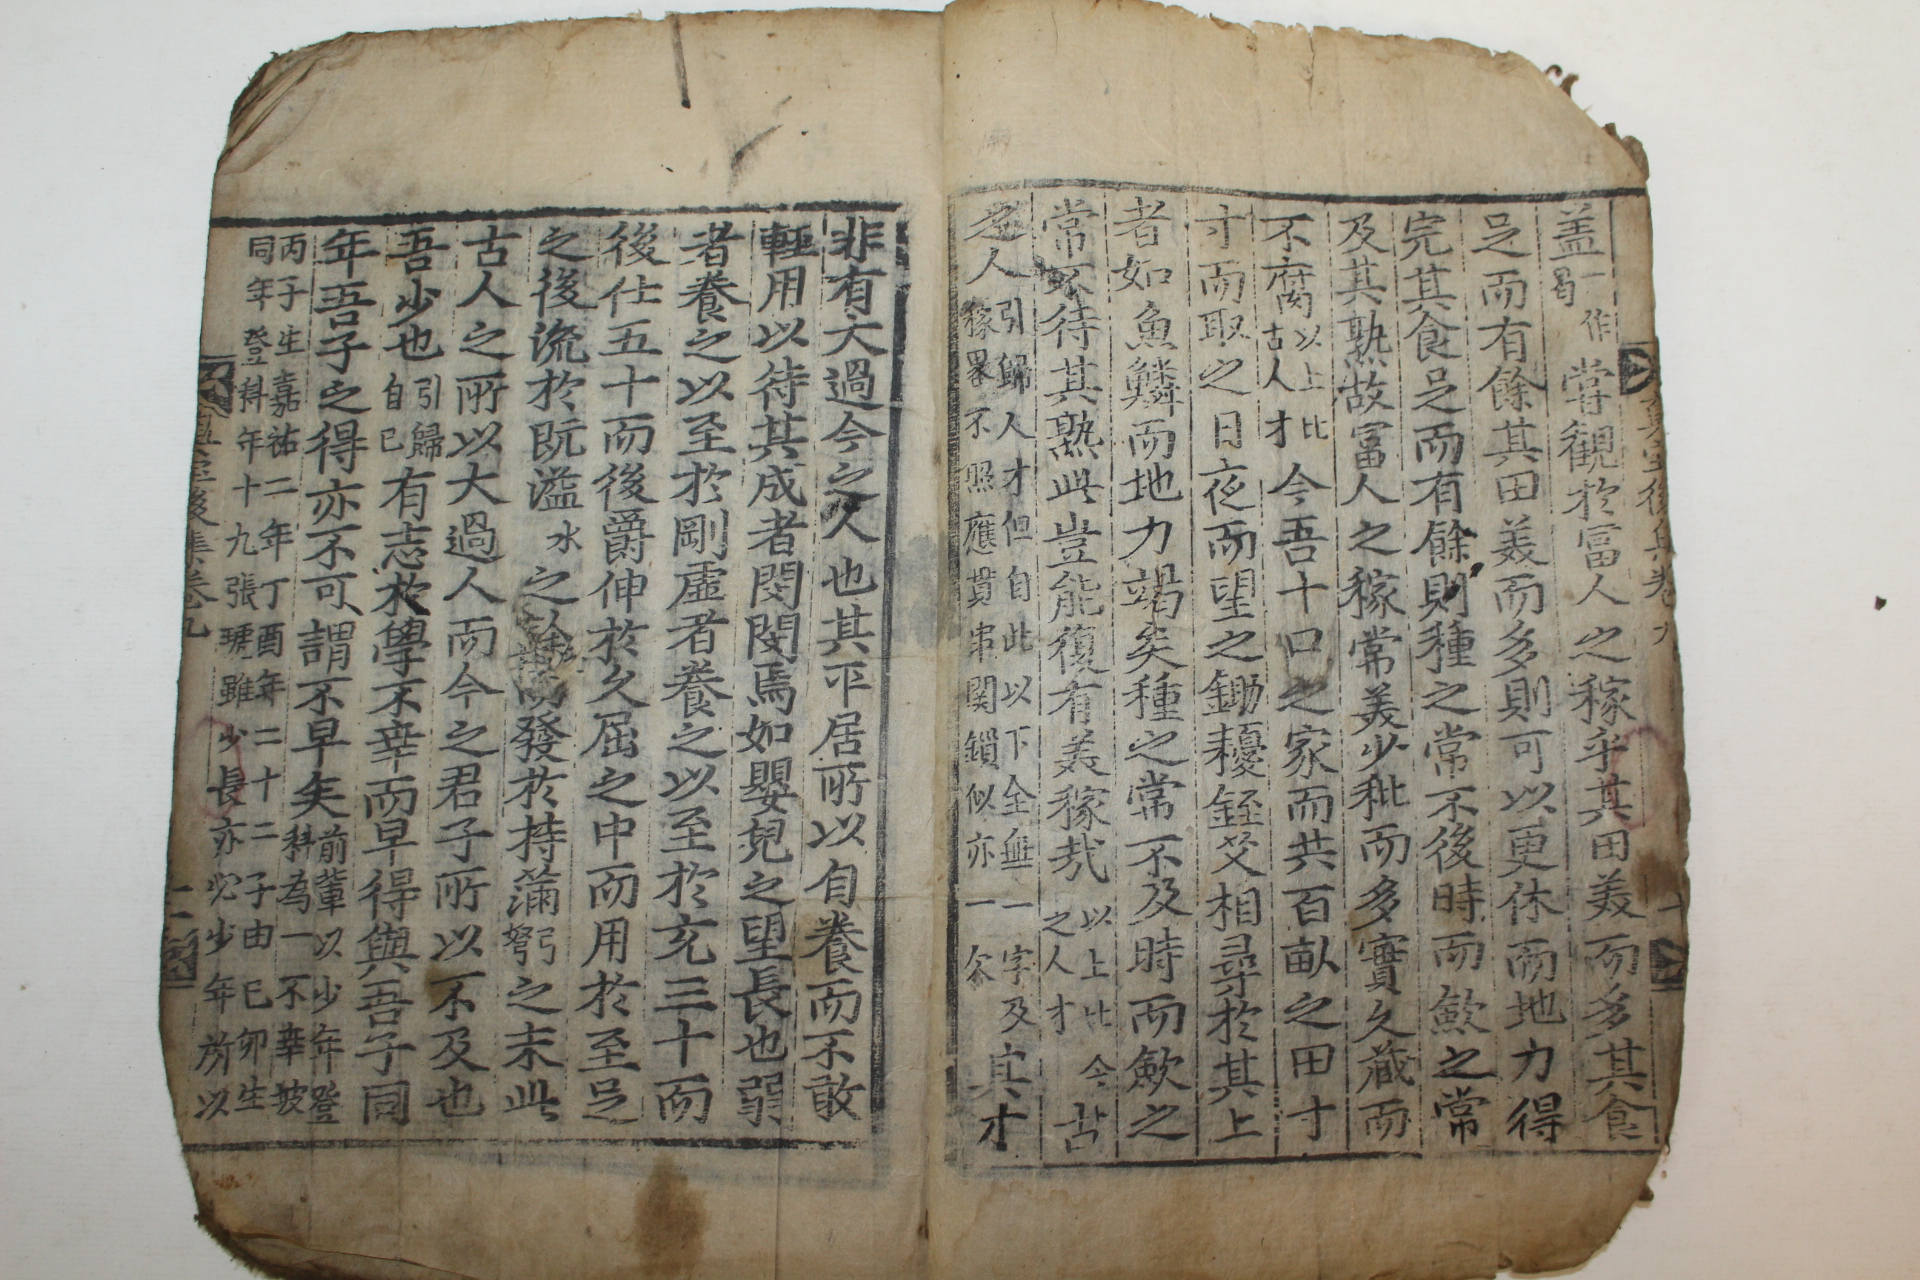 盖一作曷甞觀於富人之稼乎其田美而多其食
足而有餘其田美而多則可以更休而地力得
完其食足而有餘則種之常不後時而歛之常
及其熟故富人之稼常美少秕而多實久藏而
不腐以上比古人才今吾十口之家而共百畒之田寸
寸而取之日夜而望之鋤耰銍艾相尋於其上
者如魚鱗而地力竭矣種之常不及時而歛之
常不待其熟此豈能復有美稼哉以上比今之人才古
之人引歸人才但自此以下全無一字及稼畧不照應貫串関鎖似亦一分其才
非有大過今之人也其平居所以自養而不敢
輕用以待其成者閔閔焉如嬰兒之望長也弱
者養之以至於剛虛者養之以至於充三十而
後仕五十而後爵伸於久屈之中而用於至足
之後流於既溢水之餘而發於持滿弓弩之末此
古人之所以大過人而今之君子所以不及也
吾少也引歸自己有志於學不幸而早得與吾子同
年吾子之得亦不可謂不早矣前輩以少年登科為一不幸坡
丙子生嘉祐二年丁酉年二十二子由己卯生同年登科年十九張琥雖少長亦必少年所以